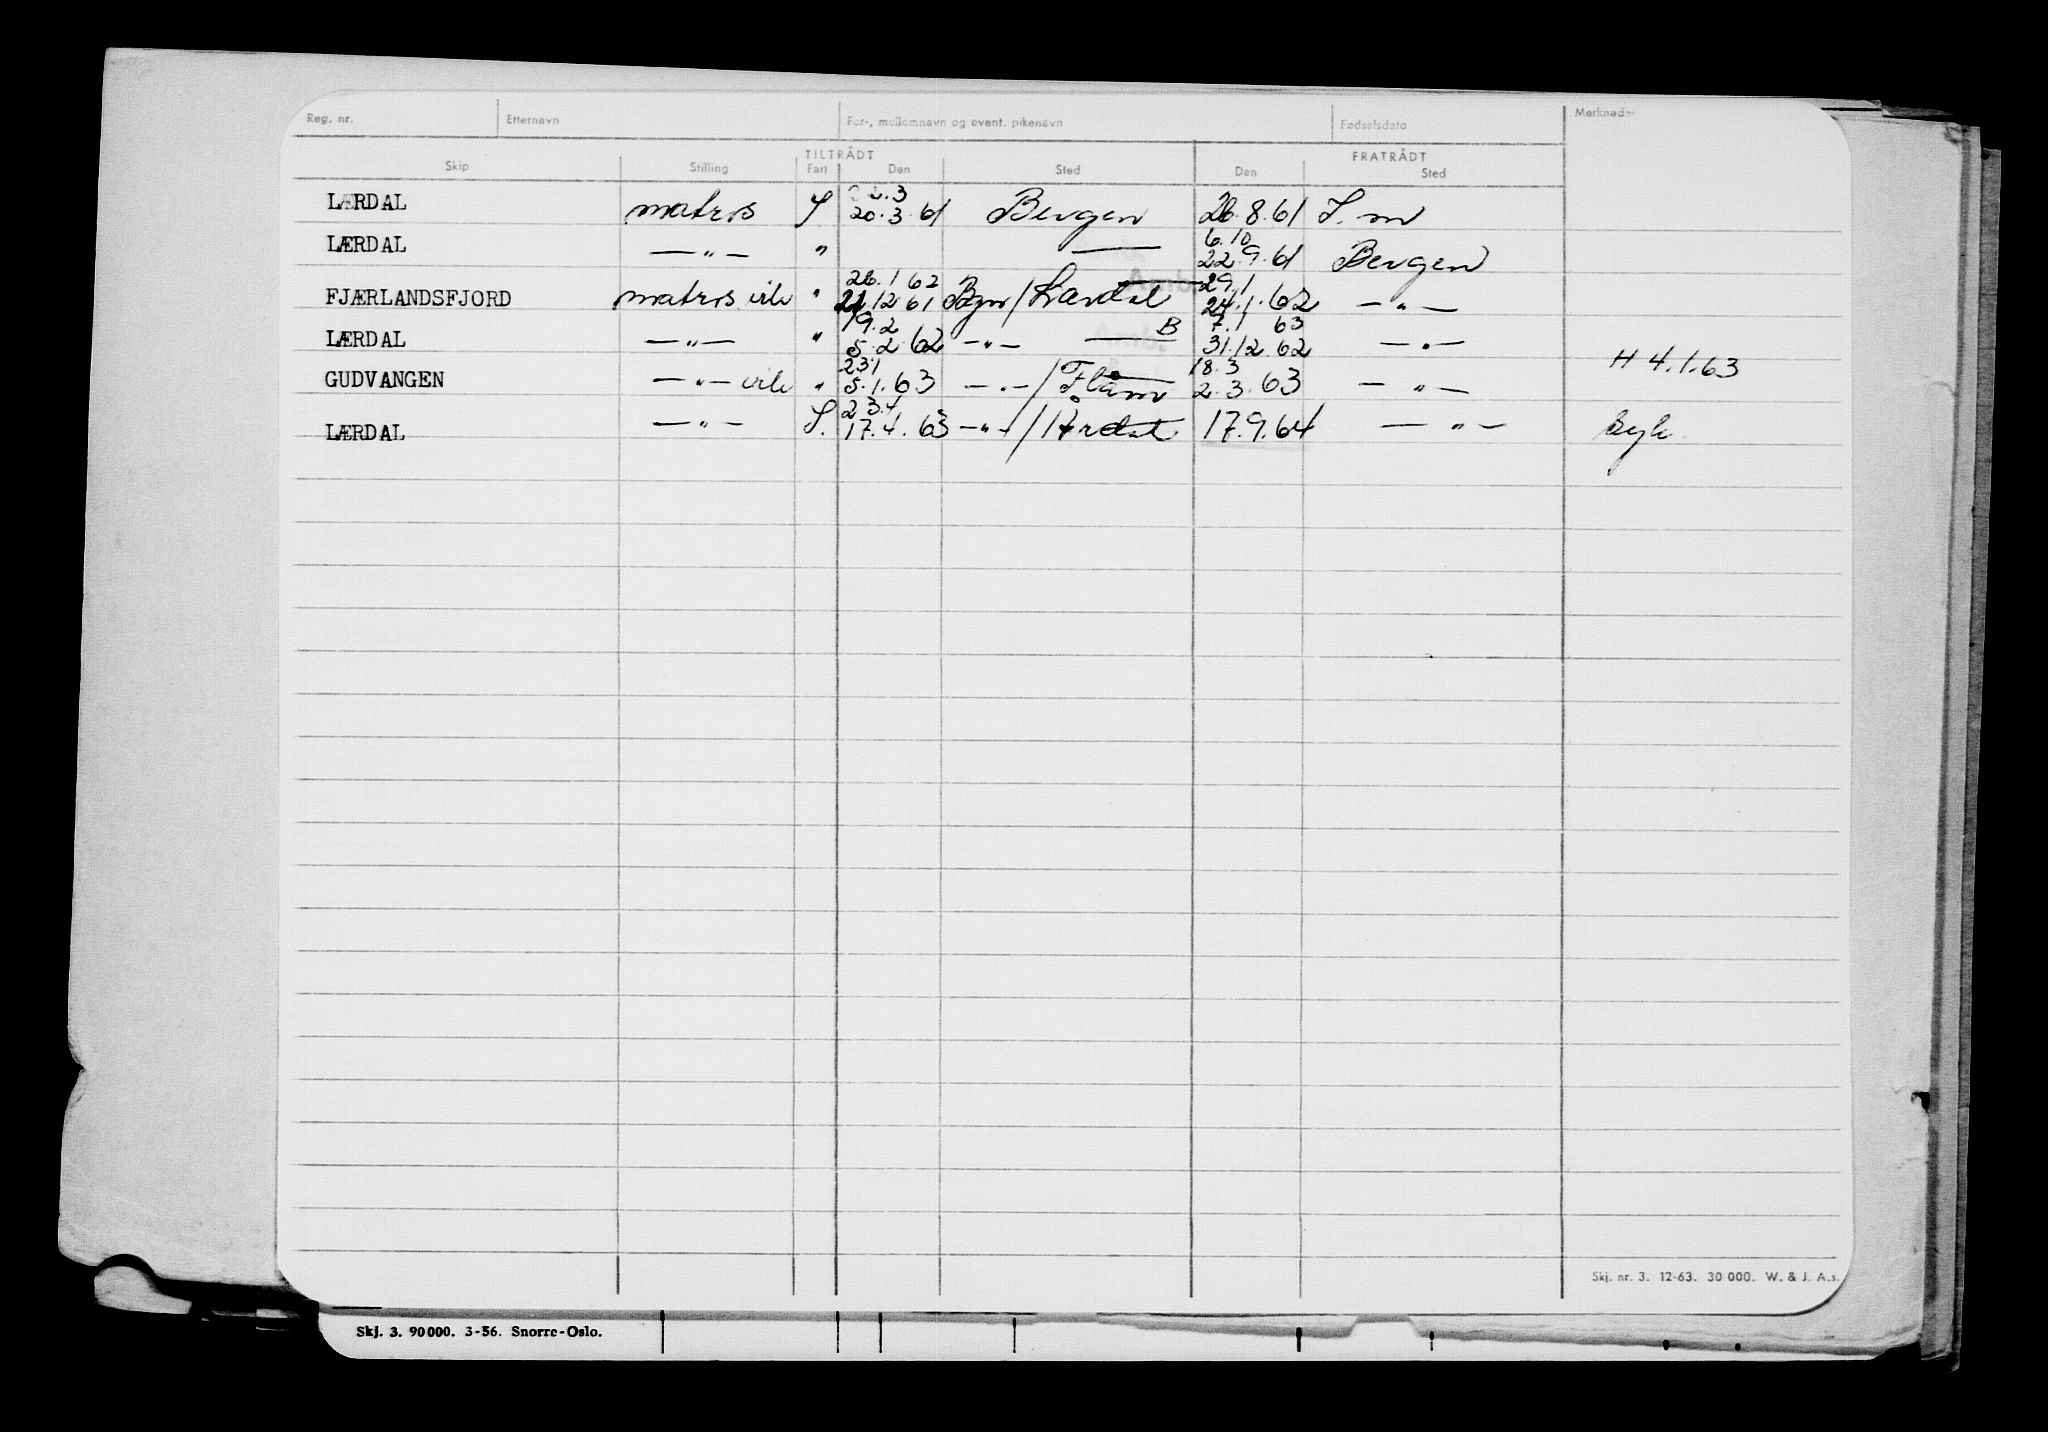 Reg. nr. Etternavn For-, mellomnavn og event. pikenavn Fødselsdato Merknader
TILTRÅDT FRATRÅDT
Skip Stilling Fart Den Sted Den Sted
LÆRDAL matros S. 20.3.61 Bergen 26.8.61 S. m
6.10
LÆRDAL —"— " — 22.9.61 Bergen
26.1 62 29/1
FJÆRLANDSFJORD matros vik " 21.12 61 Bgn/Lærdal 24.1.62 —"—
19.2 7.1 63
LÆRDAL —"— " 5.2.62 —"— B 31.12.62 —"—
H 4.1.63
23/1 18.3
GUDVANGEN —"— vik " 5.1.63 —"—/Flåm 2.3.63 —"—
23.4
LÆRDAL —"— S. 17.4.63 —"—/Årdal 17.9.64 —"— syk
Skj. nr. 3. 12-63. 30 000. W. & J. A.s.
Skj. 3. 90000. 3-56. Snorre-Oslo.